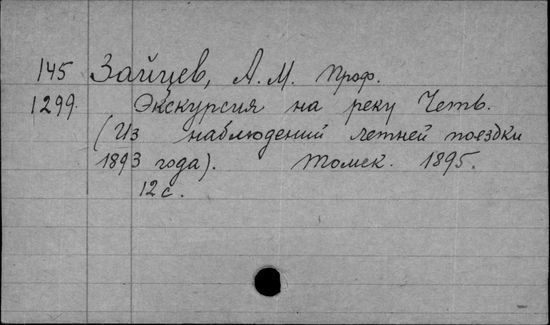 145 Зайцев, А. М. Проф.
1299. Экскурсия на реку Четь.
(Из наблюдений летней поездки
1893 года). Томск. 1895.
12 с.